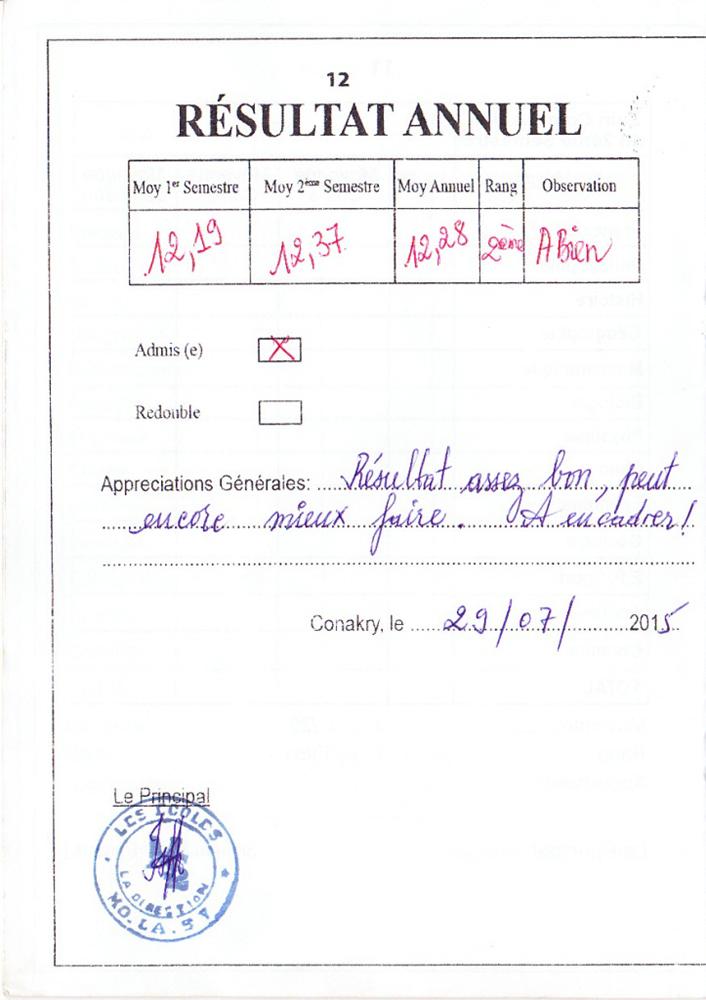 12
RÉSULTAT ANNUEL
Moy 1er Semestre Moy 2ème Semestre Moy Annuel Rang Observation
12,19 12,37 12,28 2ème ABien
Admis (e) X
Redouble
Appreciations Générales: Résultat assez bon, peut
encore mieux faire. A encadrer!
Conakry, le 29/07/2015
Le Principal
LES ECOLES
LA DIRECTION
MO.LA.SY